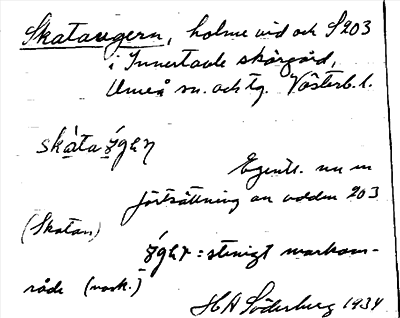 Skataugern, holme vid och S 203
i Innertavle skärgård,
Umeå sn. och tg. Västerb. l.
skàta
Egentl. nu en
fortsättning av udden 203
(Skatan)
: stenigt markom-
råde (mask.)
H A Söderberg 1934